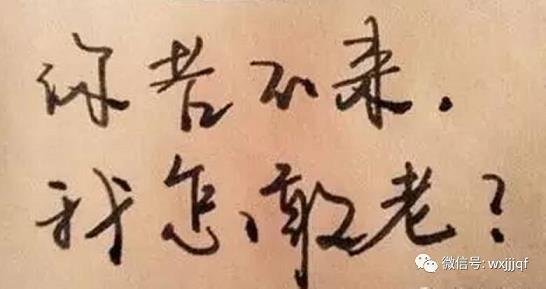 你若不来.
我怎敢老?
微信号: wxjjjqf